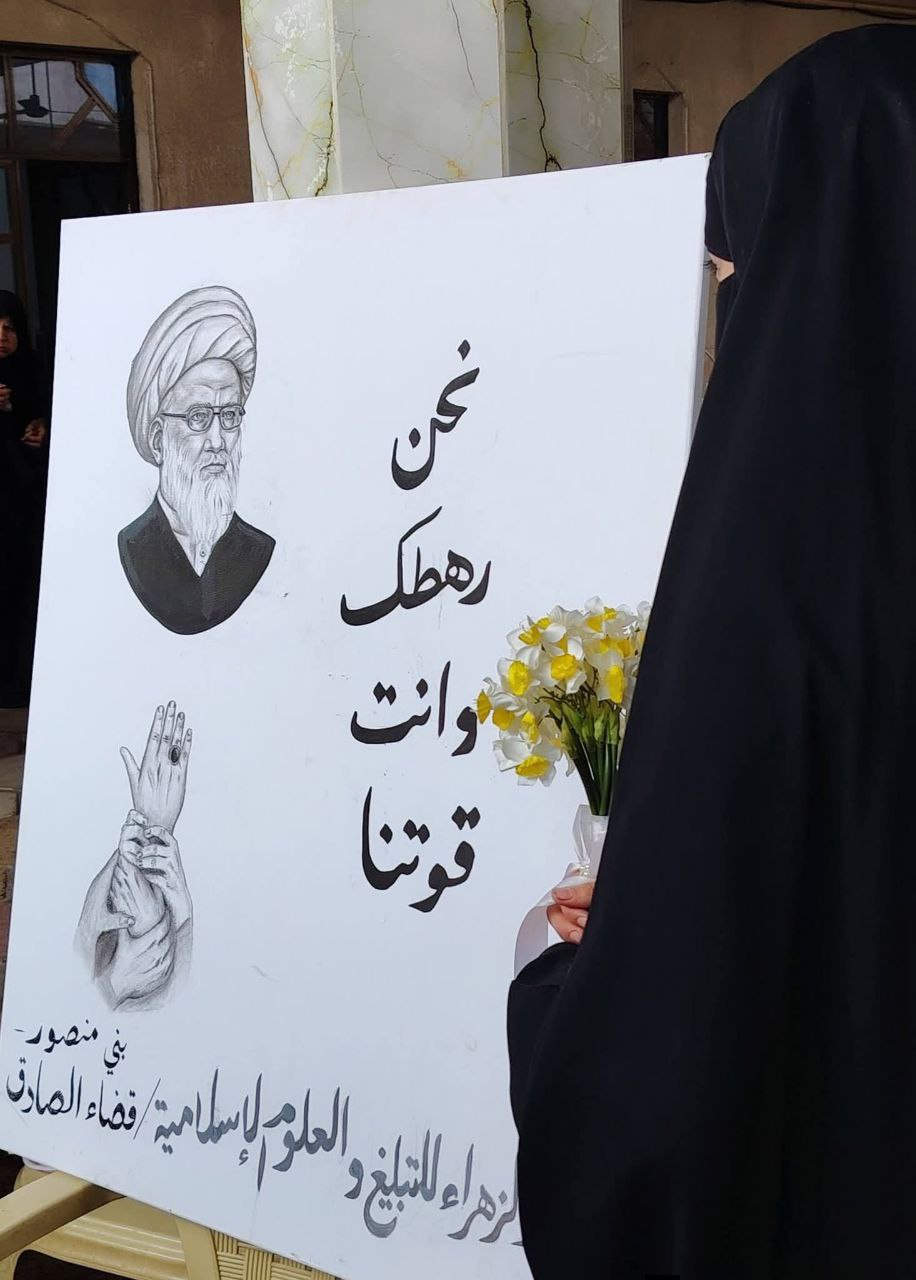 نحن
رهطك
وانت
قوتنا
بني منصور -
الزهراء للتبليغ و العلوم الإسلامية / قضاء الصادق